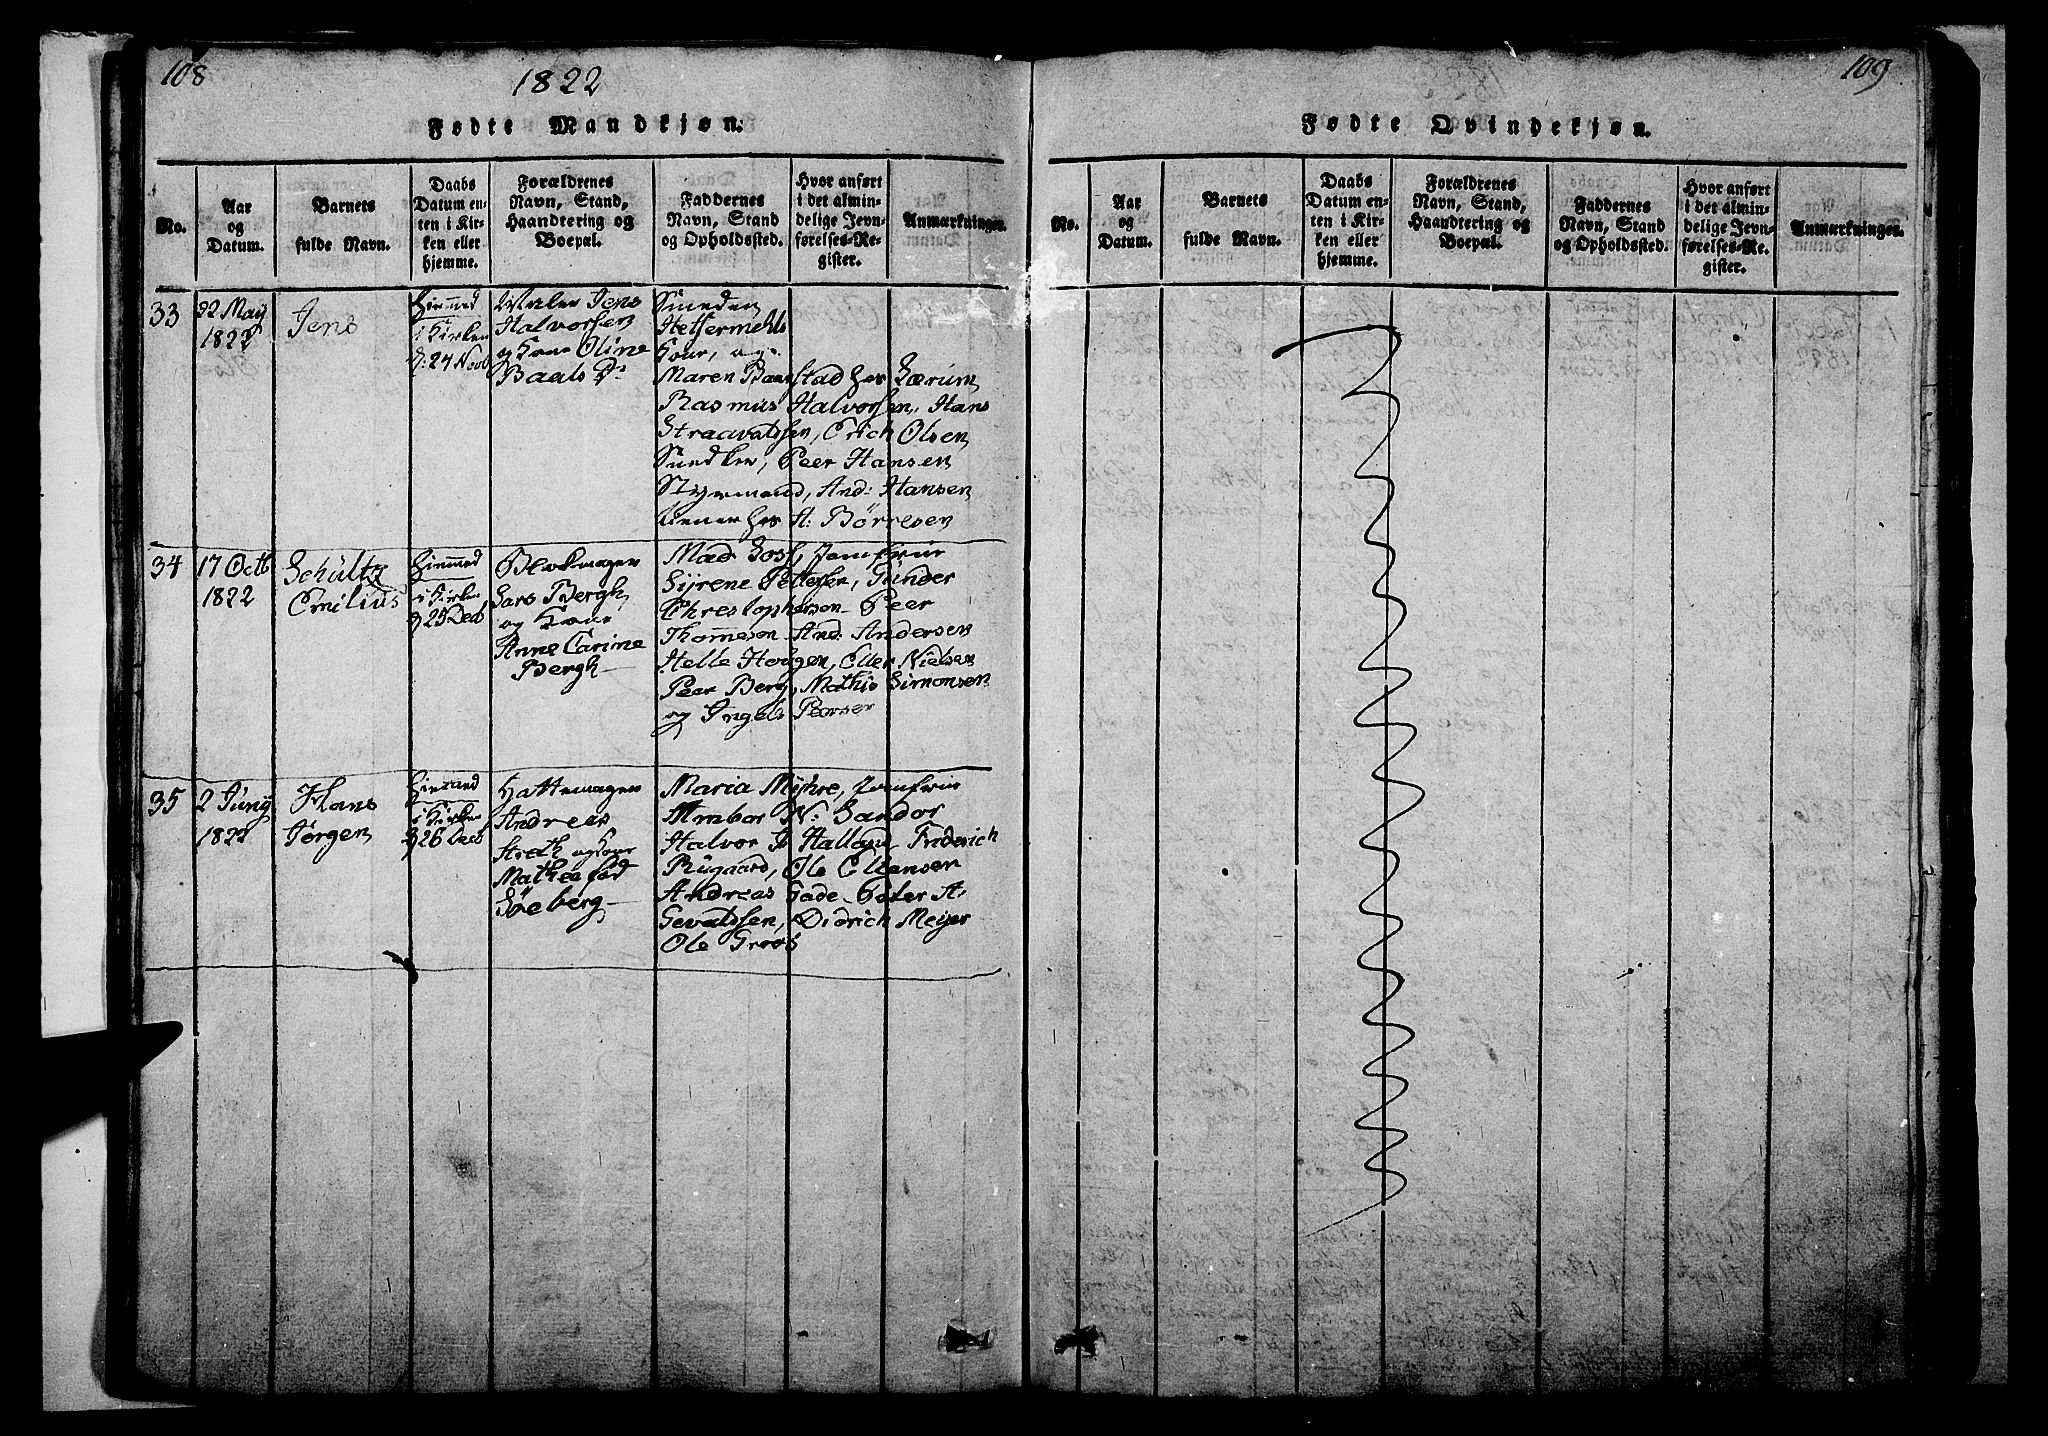 108
1822
Fødte Mandkjøn.
No.
Aar og Datum.
Barnets fulde Navn.
Daabs Datum enten i Kirken eller hjemme.
Forældrenes Navn, Stand, Haandtering og Boepæl.
Faddernes Navn, Stand og Opholdssted.
Hvor anført i det almindelige Jevnførelses-Register.
Anmærkninger.
33
22 May
1822
Jens
Hiemmed
i Kirken
d: 24 Novb
Jens
Halvorsen
og Kone Oline
Baals Dr
Smeden
Kone, og
Maren Baarstad hos Særum
Rasmus Halvorsen, Hans
Straavatssen, Erich Olsen
Peer Hansen
Styrmand, And: Hansen
tiener hos A: Börresen
34
17 Octb
1822
Schültz
Emilius
Hiemmed
i Kirken
d 25 Decb
Lars Bergh
og Kone
Anne Carine
Bergh
Mad Jomfrue
Sirene Pettersen, Günder
Christophersen Peer
Thommesen And: Andersen
Helle Hougen, Eller Nielsen
Peer Berg, Mathis Simonsen
og Ingeb Persen
35
2 Juny
1822
Hans
Jørgen
Hiemmed
i Kirken
d 26 Decb
Hattemager
Andreas
og Kone
Mathea fød
Söeberg
Maria Myhre, Jomfrue
N: Sandor
Halvor Halland Friderich
Rügaard, Ole Ellensen
Andreas Gade Peter A:
Gevatssen, Didrich Meijer
Ole Groos
109
Fødte Qvindekjøn.
No.
Aar og Datum.
Barnets fulde Navn.
Daabs Datum enten i Kirken eller hjemme.
Forældrenes Navn, Stand, Haandtering og Boepæl.
Faddernes Navn, Stand og Opholdssted.
Hvor anført i det almindelige Jevnførelses-Register.
Anmærkninger.